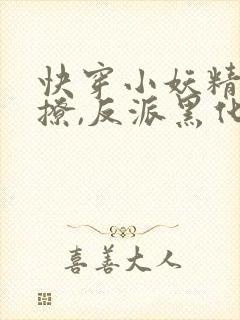 快穿小妖精
撩,反派黑化
喜善大人